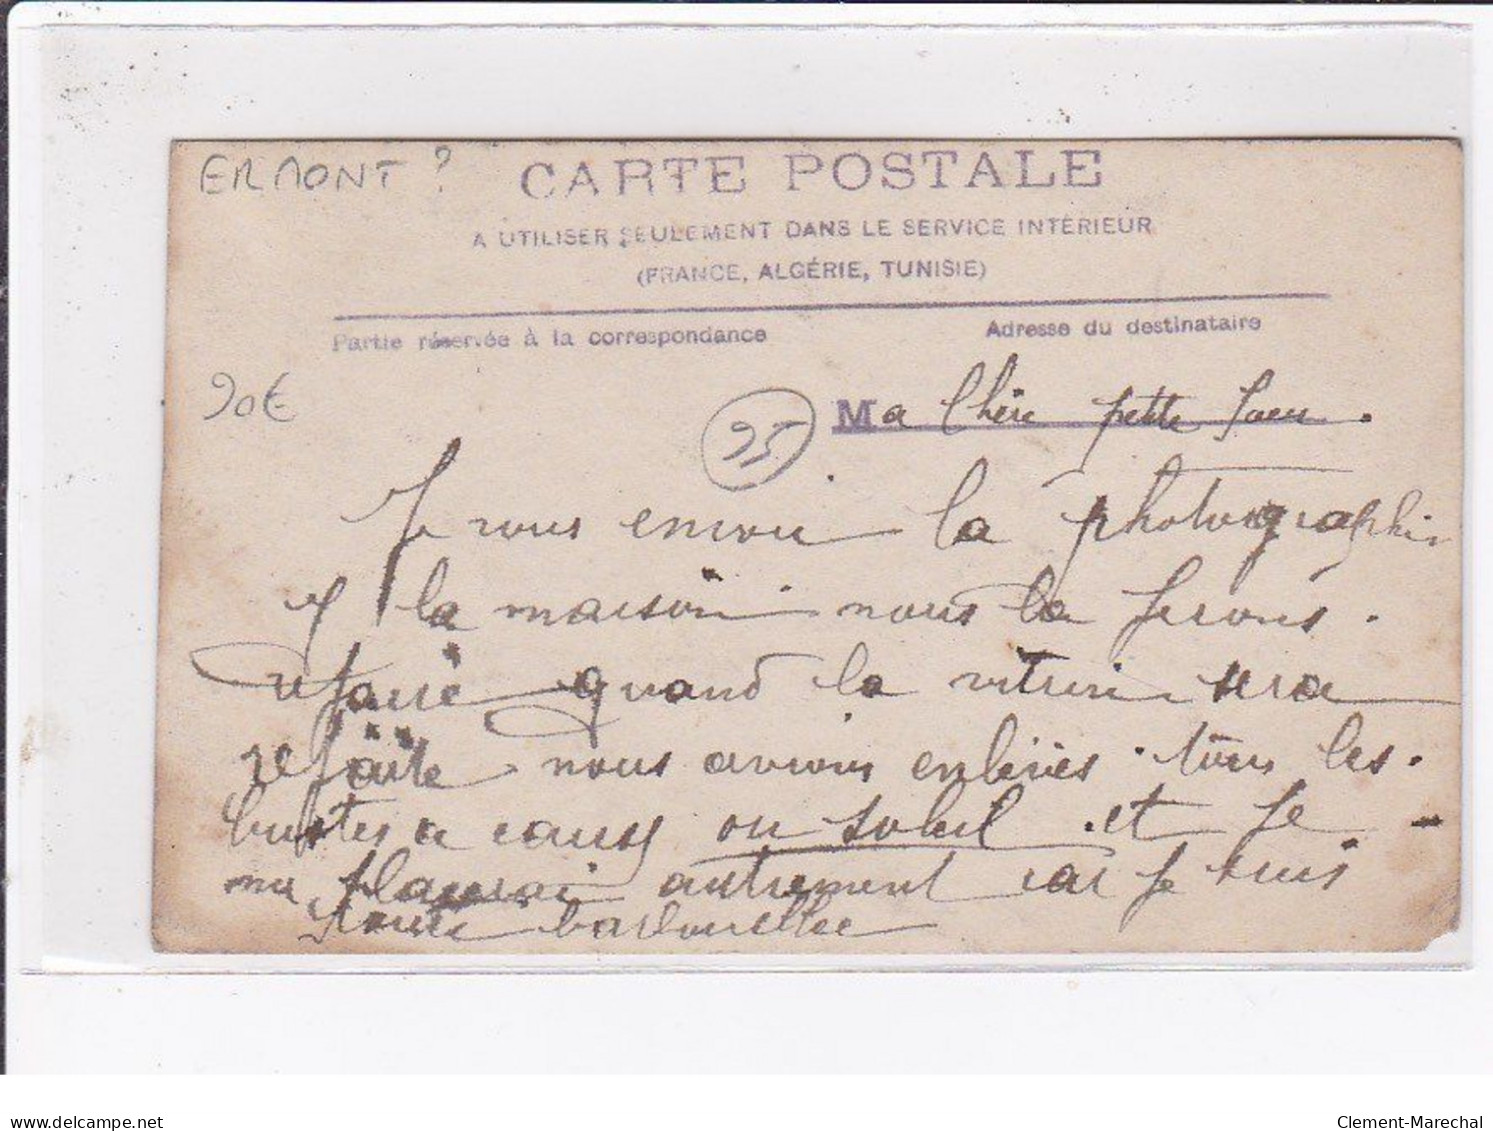 ERMONT ?
CARTE POSTALE
A UTILISER SEULEMENT DANS LE SERVICE INTÉRIEUR
(FRANCE, ALGÉRIE, TUNISIE)
Partie réservée à la correspondance
Adresse du destinataire
90€
95
Ma Chère petite Soeur.
Je vous envoie la photographie
de la maison nous la ferons.
refaire quand la vitrine sera
refaite nous avions enlevés tous les.
bustes a cause du soleil et je
me autrement car je suis
toute barbouillée
delcampe.net
Clement-Marechal